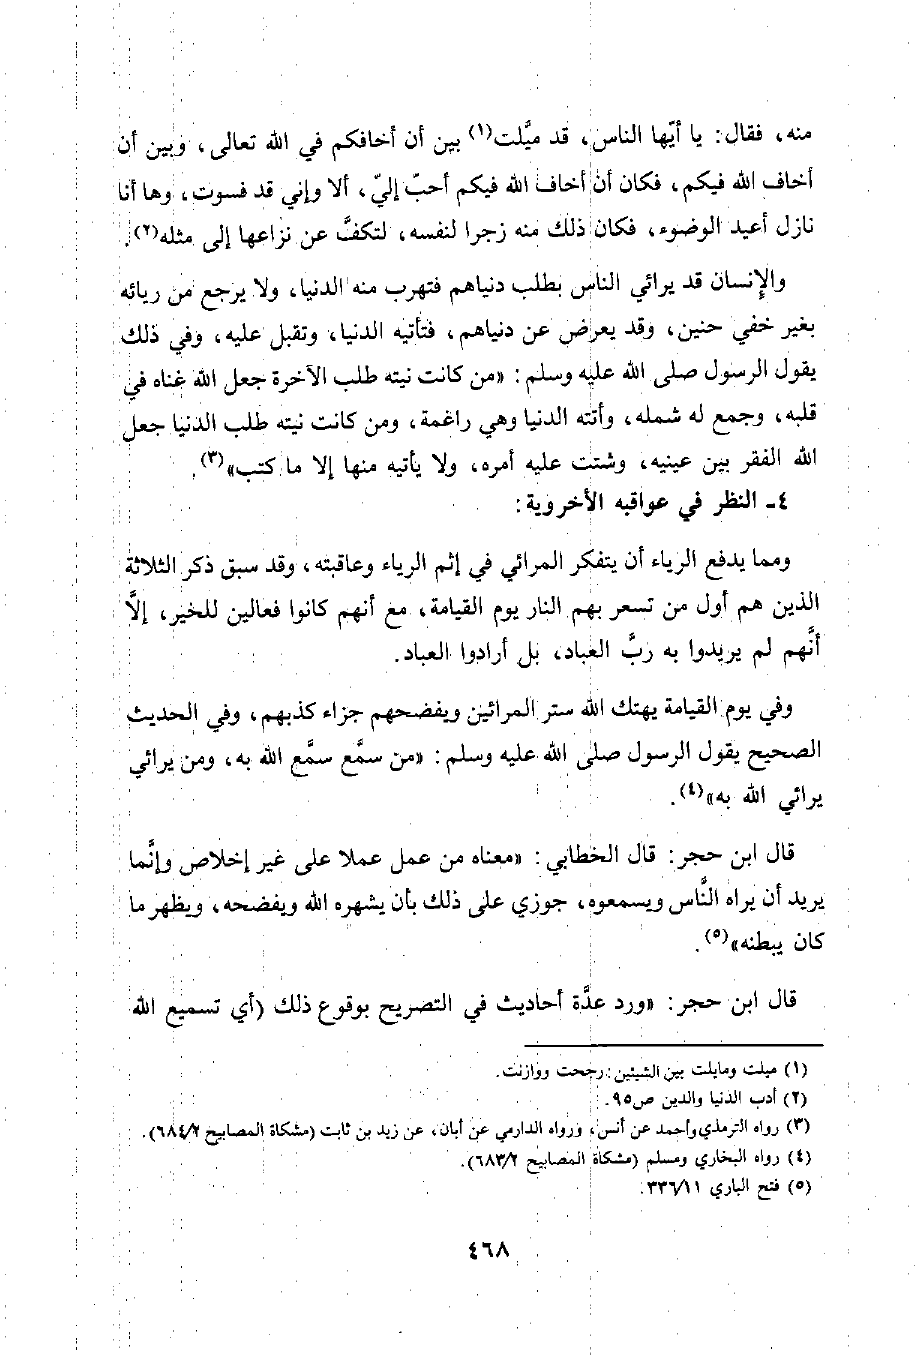 منه، فقال: يا أيّها الناس، قد ميَّلت(١) بين أن أخافكم في الله تعالى، وبين أن
أخاف الله فيكم، فكان أن أخاف الله فيكم أحبّ إليّ، ألا وإني قد فسوت، وها أنا
نازل أعيد الوضوء، فكان ذلك منه زجرا لنفسه، لتكفَّ عن نزاعها إلى مثله(٢).
والإنسان قد يرائي الناس بطلب دنياهم فتهرب منه الدنيا، ولا يرجع من ريائه
بغير خفي حنين، وقد يعرض عن دنياهم، فتأتيه الدنيا، وتقبل عليه، وفي ذلك
يقول الرسول صلى الله عليه وسلم: «من كانت نيته طلب الآخرة جعل الله غناه في
قلبه، وجمع له شمله، وأتته الدنيا وهي راغمة، ومن كانت نيته طلب الدنيا جعل
الله الفقر بين عينيه، وشتت عليه أمره، ولا يأتيه منها إلا ما كتب»(٣).
٤- النظر في عواقبه الأخروية:
ومما يدفع الرياء أن يتفكر المرائي في إثم الرياء وعاقبته، وقد سبق ذكر الثلاثة
الذين هم أول من تسعر بهم النار يوم القيامة، مع أنهم كانوا فعالين للخير، إلَّا
أنَّهم لم يريدوا به ربَّ العباد، بل أرادوا العباد.
وفي يوم القيامة يهتك الله ستر المرائين ويفضحهم جزاء كذبهم، وفي الحديث
الصحيح يقول الرسول صلى الله عليه وسلم: «من سمَّع سمَّع الله به، ومن يرائي
يرائي الله به»(٤).
قال ابن حجر: قال الخطابي: «معناه من عمل عملا على غير إخلاص وإنَّما
يريد أن يراه النَّاس ويسمعوه، جوزي على ذلك بأن يشهره الله ويفضحه، ويظهر ما
كان يبطنه»(٥).
قال ابن حجر: «ورد عدَّة أحاديث في التصريح بوقوع ذلك (أي تسميع الله
(١) ميلت ومايلت بين الشيئين: رجحت ووازنت.
(٢) أدب الدنيا والدين ص٩٥.
(٣) رواه الترمذي وأحمد عن أنس، ورواه الدارمي عن أبان، عن زيد بن ثابت (مشكاة المصابيح ٦٨٤/٢).
(٤) رواه البخاري ومسلم (مشكاة المصابيح ٦٨٣/٢).
(٥) فتح الباري ٣٣٦/١١.
٤٦٨